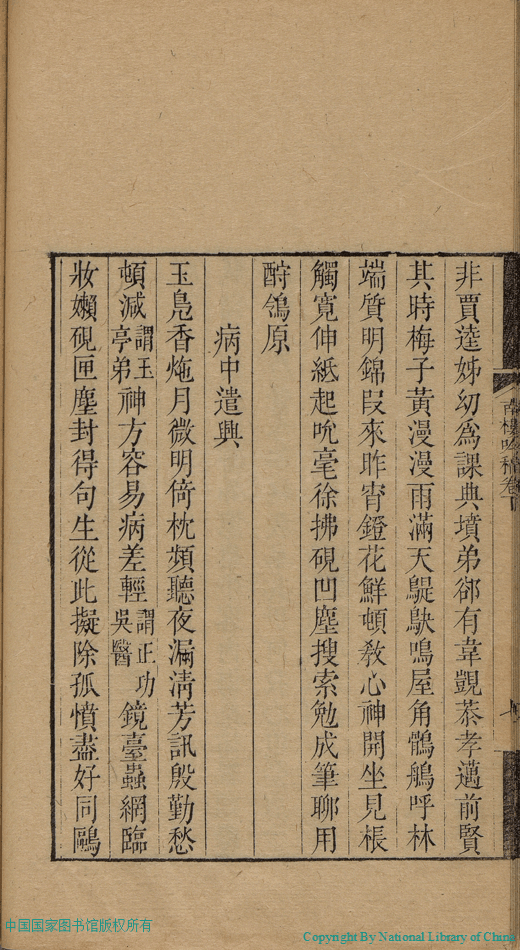 南樓吟稿卷下
非賈逵姊幼爲課典墳弟郤有韋覬恭孝邁前賢
其時梅子黃漫漫雨滿天鶗鴂鳴屋角鶻鵃呼林
端質明錦段來昨宵鐙花鮮頓敎心神開坐見棖
觸寛伸紙起吮毫徐拂硯凹塵搜索勉成筆聊用
酧鴒原
病中遣興
玉鳧香灺月微明倚枕頻聽夜漏淸芳訊殷勤愁
頓減謂玉亭弟神方容易病差輕謂正功吳醫鏡臺蟲網臨
妝嬾硯匣塵封得句生從此擬除孤憤盡好同鷗
中国国家图书馆版权所有
Copyright By National Library of China